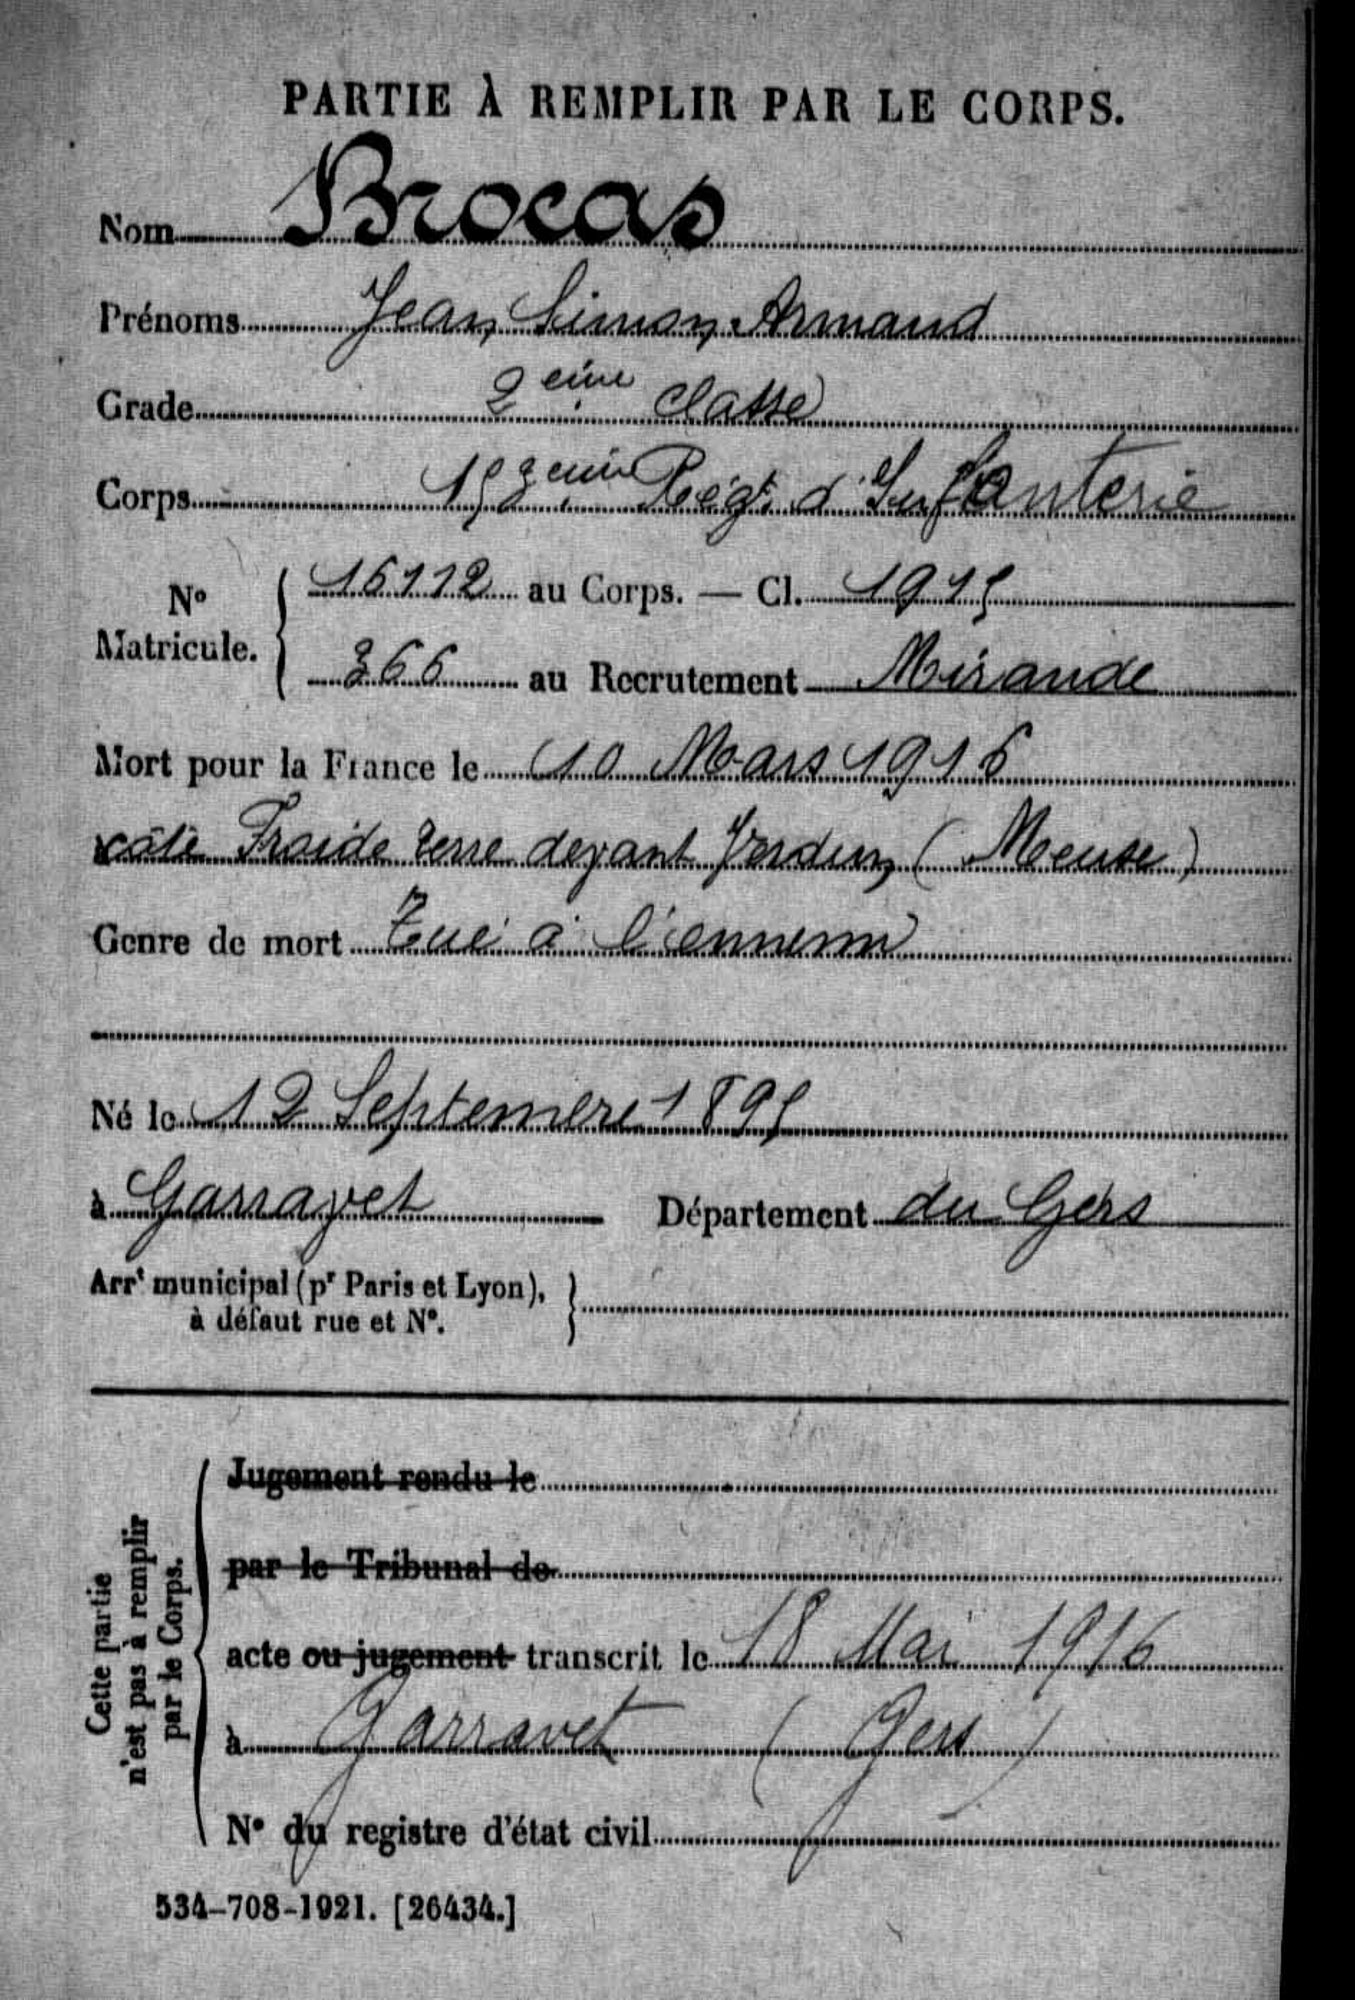 PARTIE À REMPLIR PAR LE CORPS.
Nom Brocas
Prénoms Jean Simon Armand
Grade 2eme classe
Corps 153eme Régt. d'Infanterie
No Matricule. 16112 au Corps. — Cl. 1915
366 au Recrutement Mirande
Mort pour la France le 10 Mars 1916
côte Froide terre devant Verdun (Meuse)
Genre de mort Tué à l'ennemi
Né le 12 Septembre 1895
à Garravet Département du Gers
Arrt municipal (pr Paris et Lyon),
à défaut rue et No.
Cette partie
n'est pas à remplir
par le Corps.
Jugement rendu le
par le Tribunal de
acte ou jugement transcrit le 18 Mai 1916
à Garravet (Gers)
No du registre d'état civil
534-708-1921. [26434.]